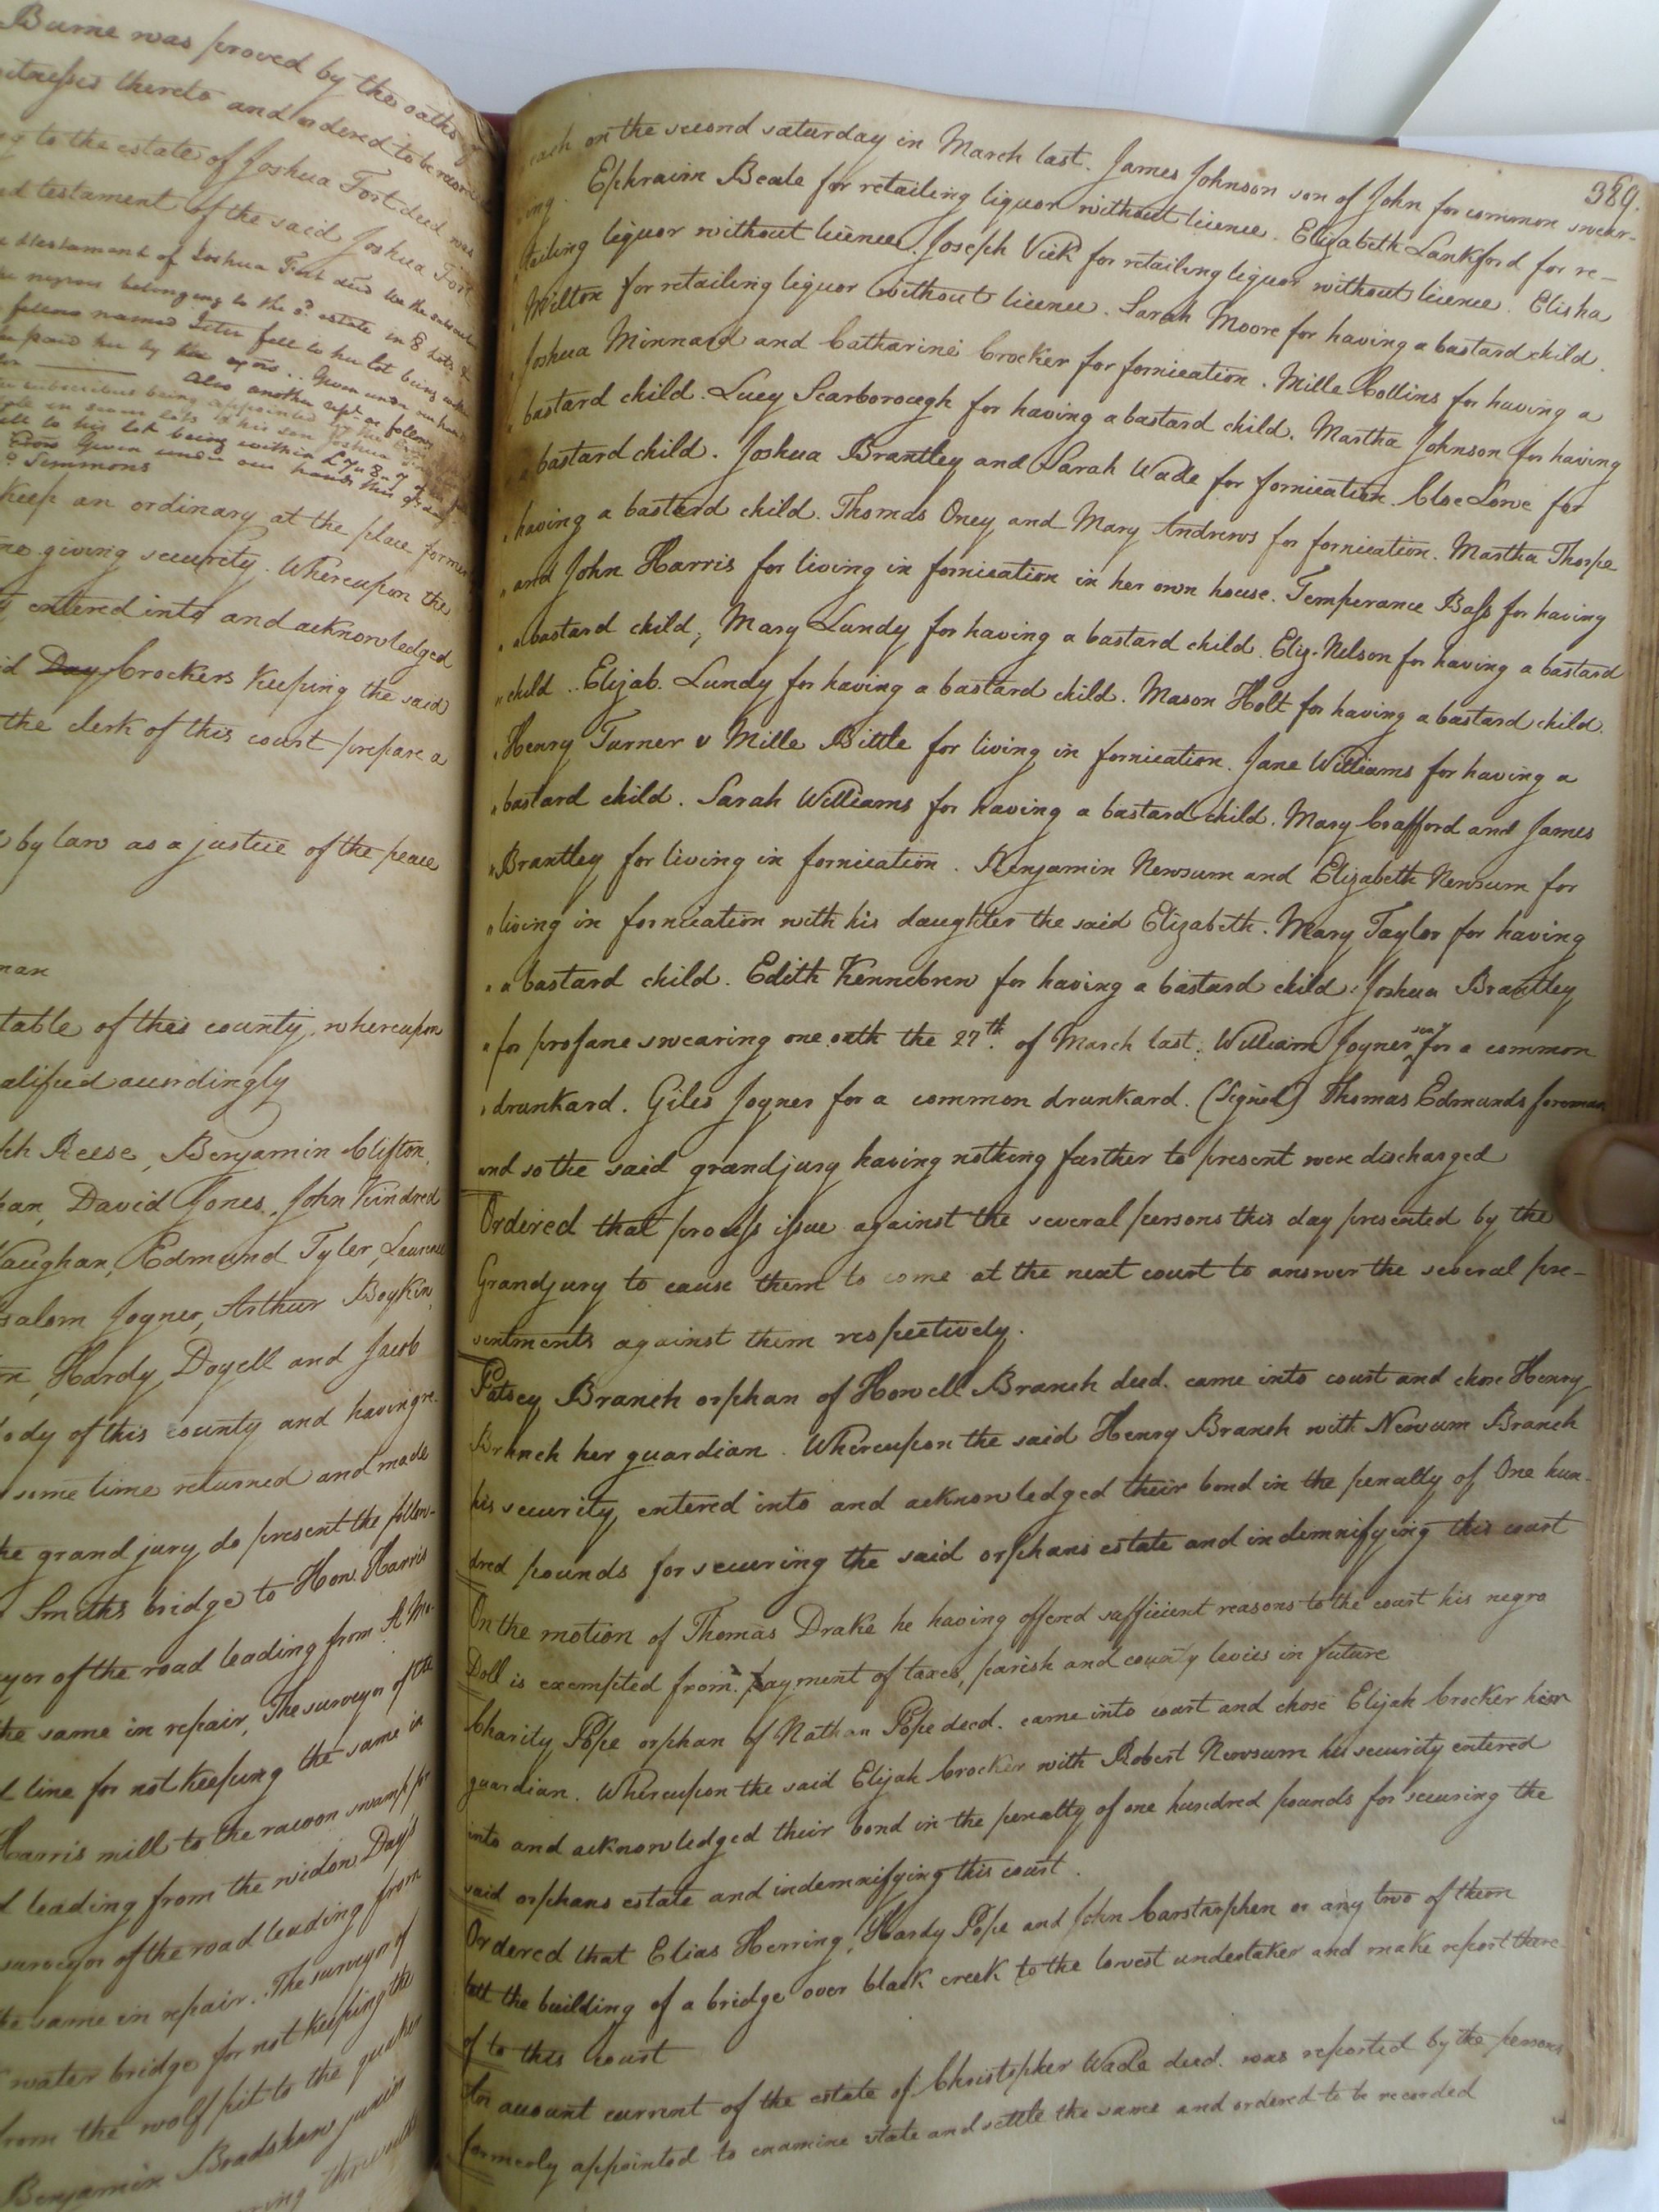 Burne was proved by the oaths of
witnesses thereto and ordered to be recorded
to the estate of Joshua Fort deed was
testament of the said Joshua Fort
testament of Joshua Fort deed
negroes belonging to the sd. estate in 8 lots &
fellow named Peter fell to her lot being
paid her by the exors. Given under our hands
Also another rept. as follows
subscribers being appointed by the
his son Joshua
fell to his lot being within
Given under our hands this 9th day
Simmons
Keep an ordinary at the place former
giving security. Whereupon the
entered into and acknowledged
Day Crockers Keeping the said
the clerk of this court prepare a
by law as a justice of the peace
man
table of this county, whereupon
alified accordingly
Reese, Benjamin Clifton,
David Jones, John Kindred
Vaughan, Edmund Tyler, Laurence
salom Joyner, Arthur Boykin,
Hardy Doyell and Jacob
body of this county and having re-
some time returned and made
the grand jury do present the follow-
Smiths bridge to How. Harris
yor of the road leading from A. Mo-
the same in repair, The surveyor of the
line for not Keeping the same in
Harris mill to the racoon swamp for
leading from the widow Day's
surveyor of the road leading from
the same in repair. The surveyor of
water bridge for not Keeping the
from the wolf pit to the quaker
Benjamin Bradshaw junior
389.
each on the second saturday in March last. James Johnson son of John for common swear-
ing. Ephraim Beale for retailing liquor without licence. Elizabeth Lankford for re-
tailing liquor without licence. Joseph Vick for retailing liquor without licence. Elisha
Milton for retailing liquor without licence. Sarah Moore for having a bastard child.
Joshua Minnard and Catharine Crocker for fornication. Mille Collins for having a
bastard child. Lucy Scarborough for having a bastard child. Martha Johnson for having
a bastard child. Joshua Brantley and Sarah Wade for fornication. Cloe Lowe for
having a bastard child. Thomas Oney and Mary Andrews for fornication. Martha Thorpe
and John Harris for living in fornication in her own house. Temperance Bass for having
a bastard child, Mary Lundy for having a bastard child. Eliz. Nelson for having a bastard
child.. Elizab. Lundy for having a bastard child. Mason Holt for having a bastard child.
Henry Turner v Mille Bittle for living in fornication. Jane Williams for having a
bastard child. Sarah Williams for having a bastard child. Mary Crafford and James
Brantley for living in fornication. Benjamin Newsum and Elizabeth Newsum for
living in fornication with his daughter the said Elizabeth. Mary Taylor for having
a bastard child. Edith Kennebrew for having a bastard child. Joshua Brantley
for profane swearing one oath the 27th. of March last. William Joyner senr for a common
drunkard. Giles Joyner for a common drunkard. (Signed) Thomas Edmunds foreman
and so the said grandjury having nothing further to present were discharged
Ordered that process issue against the several persons this day presented by the
Grandjury to cause them to come at the next court to answer the several pre-
sentments against them respectively.
Patsey Branch orphan of Howell Branch deed. came into court and chose Henry
Branch her guardian. Whereupon the said Henry Branch with Newum Branch
his security, entered into and acknowledged their bond in the penalty of One hun-
dred pounds for securing the said orphans estate and indemnifying this court
On the motion of Thomas Drake he having offered sufficient reasons to the court his negro
Doll is exempted from payment of taxes, parish and county levies in future
Charity Pope orphan of Nathan Pope deed. came into court and chose Elijah Crocker her
guardian. Whereupon the said Elijah Crocker with Robert Newsum his security entered
into and acknowledged their bond in the penalty of one hundred pounds for securing the
said orphans estate and indemnifying this court.
Ordered that Elias Herring, Hardy Pope and John Carstarphen or any two of them
lett the building of a bridge over black creek to the lowest undertaker and make report there-
of to this court
An account current of the estate of Christopher Wade deed. was reported by the persons
formerly appointed to examine state and settle the same and ordered to be recorded